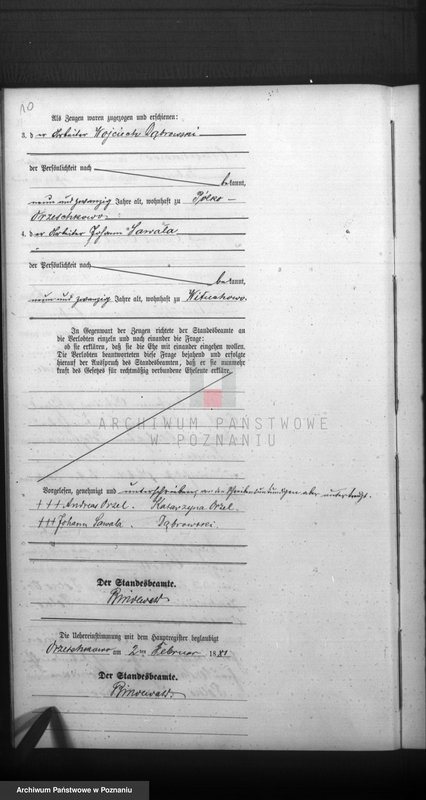 10
Als Zeugen waren zugezogen und erschienen:
3. der Arbeiter Wojciech Dąbrowski
der Persönlichkeit nach
bekannt,
neun und zwanzig Jahre alt, wohnhaft zu Polko-
Orzeschkowo
4. der Arbeiter Johann Sawala
der Persönlichkeit nach
bekannt,
neun und zwanzig Jahre alt, wohnhaft zu
In Gegenwart der Zeugen richtete der Standesbeamte an
die Verlobten einzeln und nach einander die Frage:
ob sie erklären, daß sie die Ehe mit einander eingehen wollen.
Die Verlobten beantworteten diese Frage bejahend und erfolgte
hierauf der Ausspruch des Standesbeamten, daß er sie nunmehr
kraft des Gesetzes für rechtmäßig verbundene Eheleute erkläre.
ARCHIWUM PAŃSTWOWE
W POZNANIU
Vorgelesen, genehmigt und
+++ Andreas Orzel. Katarzyna Orzel
+++ Johann Sawala. Dąbrowski.
Der Standesbeamte.
Die Uebereinstimmung mit dem Hauptregister beglaubigt
Orzeschkowo am 2ten Februar 1881
Der Standesbeamte.
Archiwum Państwowe w Poznaniu